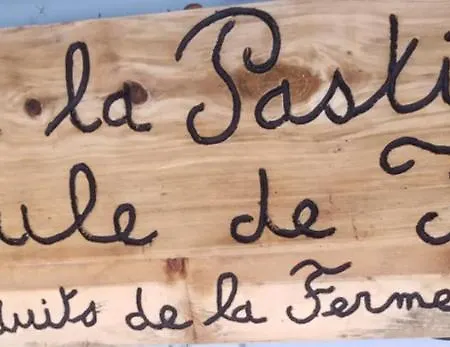 la Pasti
ule de
duits de la Ferme